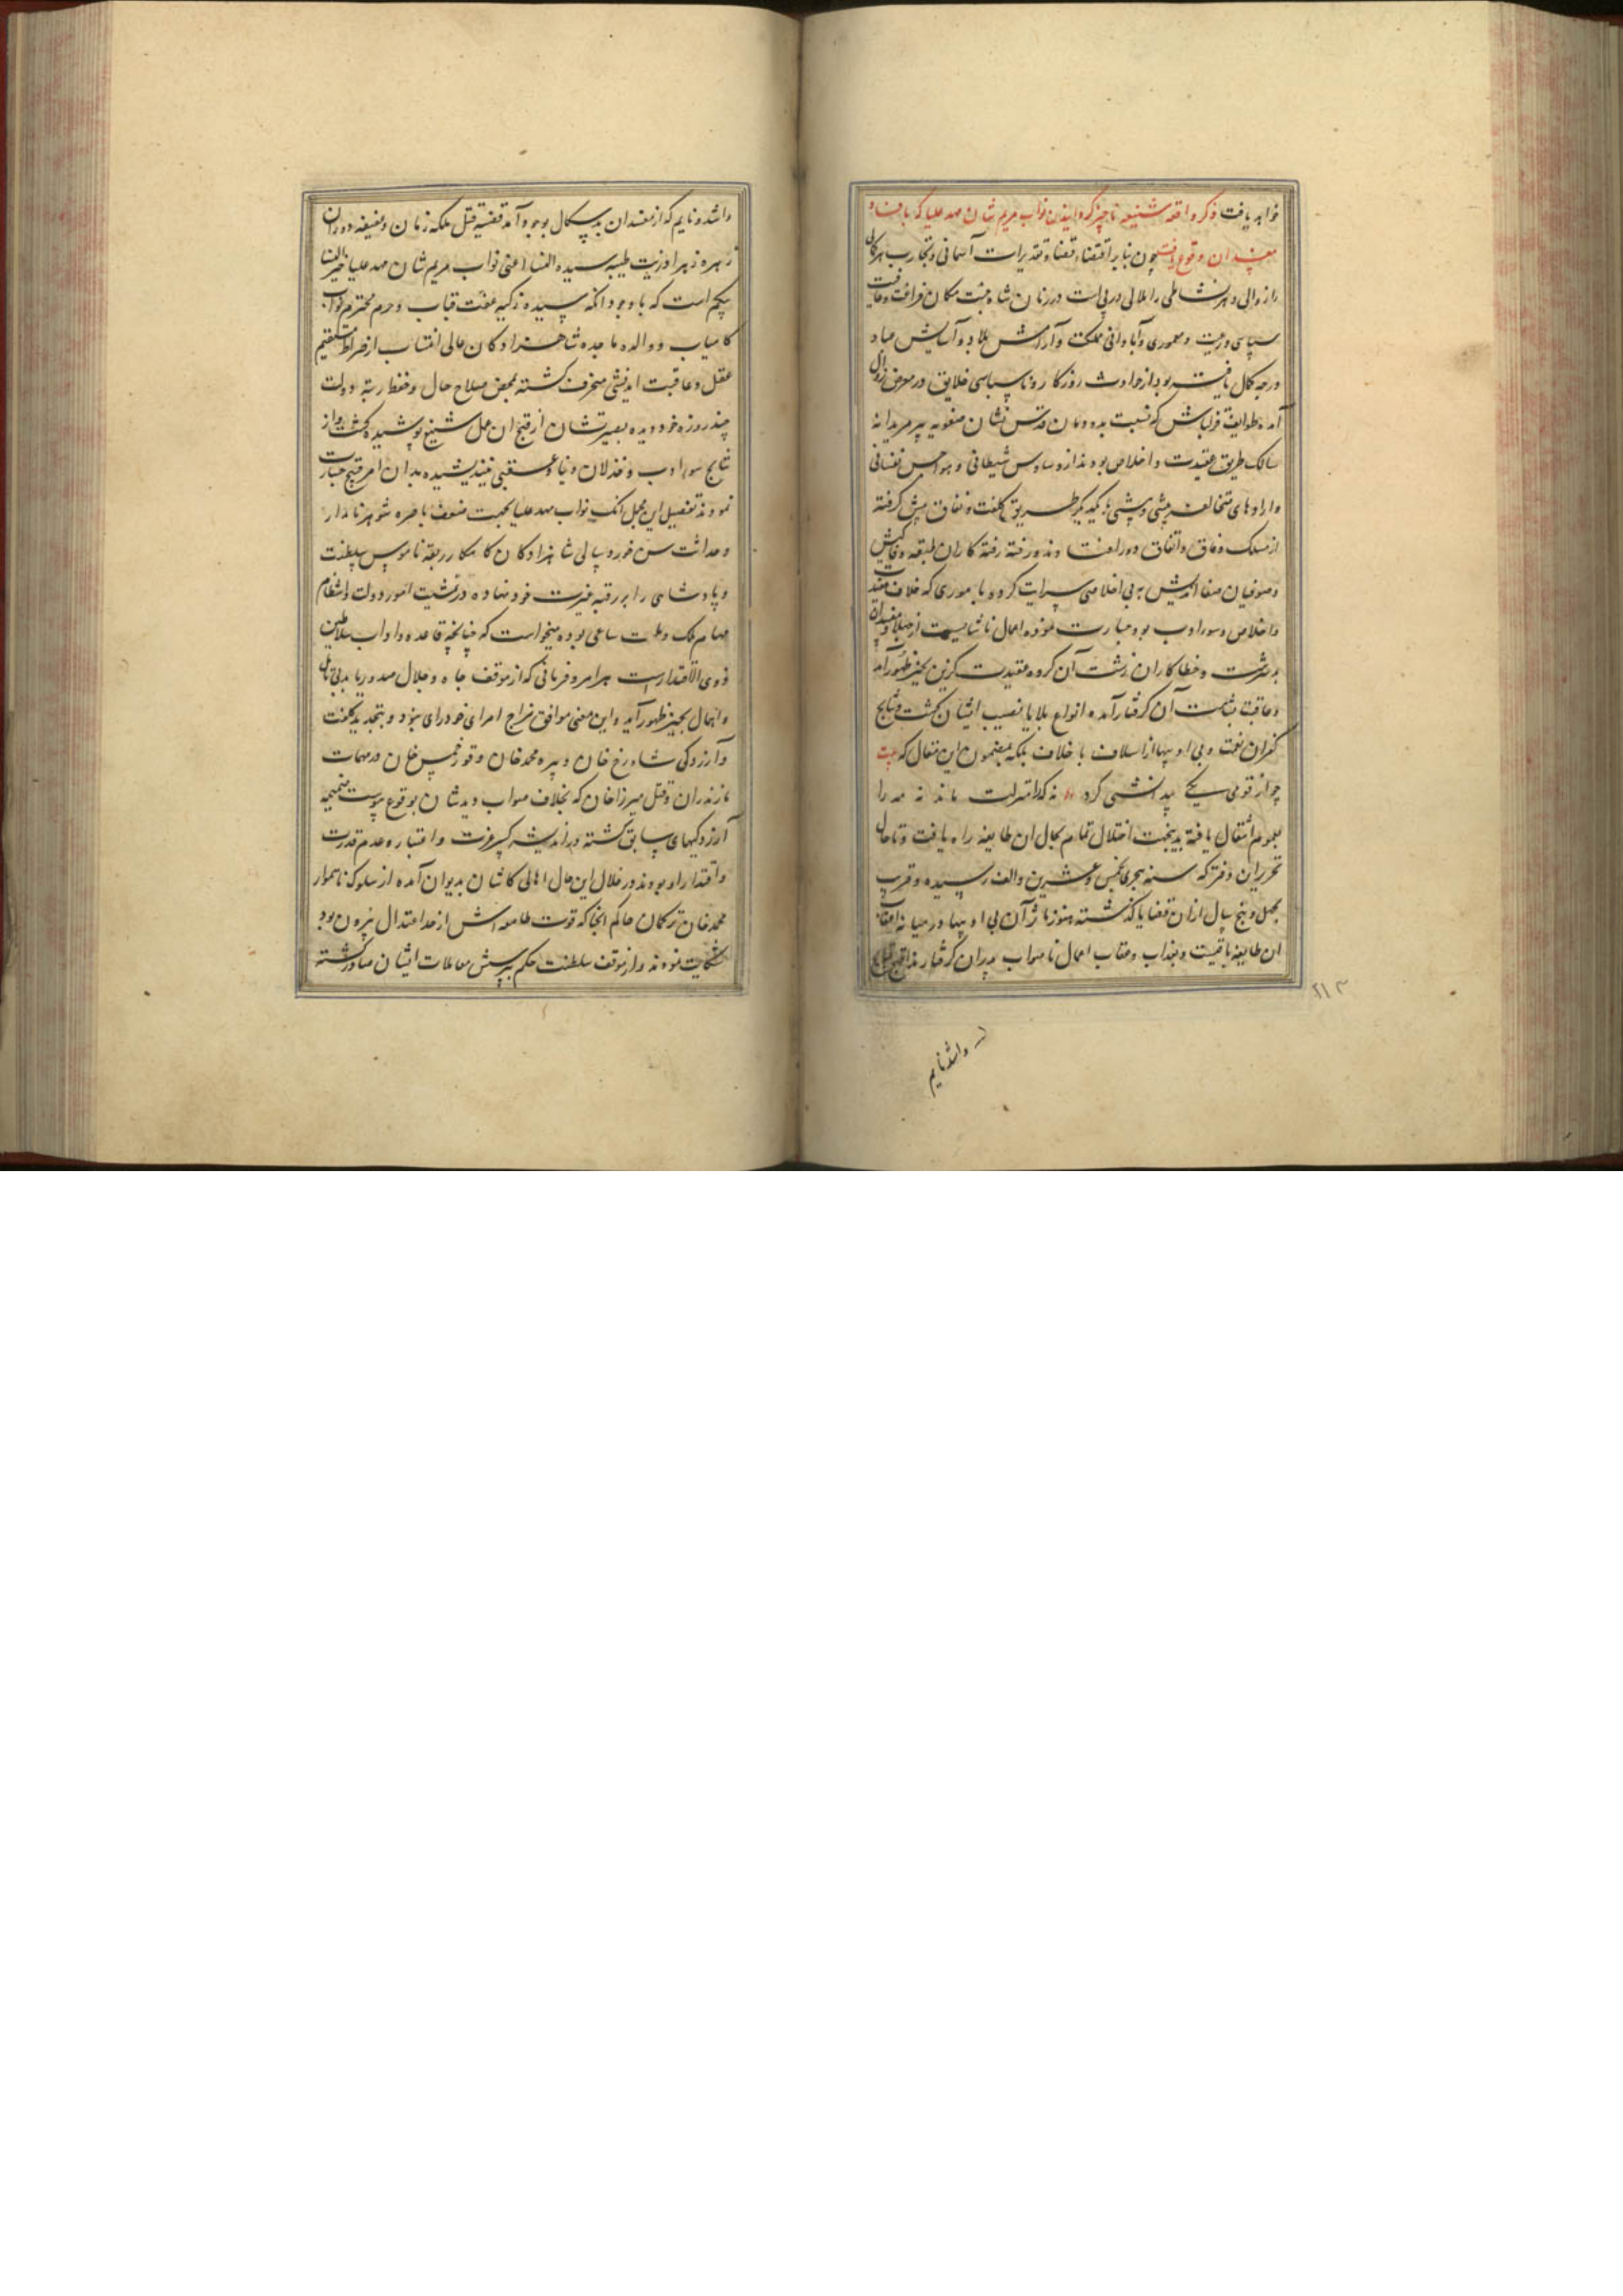 خواهد یافت ذکر واقعه شنیعه ناچیز گردانیدن نواب مریم شان مهد علیا که بافساد
مفسدان وقوع یافت چون بنابر اقتضاء قضاء و تقدیرات آسمانی و تجارب هر کمالی
را زوالی و هر نشاطی را ملالی در پی است در زمان شاه جنت مکان فراغت و عافیت
سپاهی و رعیت و معموری و آبادانی مملکت و آرامش بلاد و آسایش عباد
درجه کمال یافته بود از حوادث روزگار روناسپاسی خلایق در معرض زوال
آمده طوایف قزلباش که نسبت بدودمان قدس نشان صفویه پیر مریدانه
سالک طریق عقیدت و اخلاص بودند از وساوس شیطانی و هواجس نفسانی
و اراده‌های متخالف پیشی و بیشی با یکدیگر طریق کلفت و نفاق پیش گرفته
از مسلک وفاق و اتفاق دور افتادند و رفته رفته کار آن طبقه وفاکیش
و صوفیان صفا اندیش به بی اخلاصی سرایت کرده و باموری که خلاف عقیدت
و اخلاص و سوء ادب بود جسارت نموده اعمال ناشایست از جهلا و مفسدان
بد سرشت و خطاکاران زشت آن گروه عقیدت گزین بحیز ظهور آمد
و عاقبت بشامت آن گرفتار آمده انواع بلایا نصیب ایشان گشت و نتایج
کفران نعمت و بی ادبیها از اسلاف باخلاف بلکه بمضمون این مقال که بیت
چو از قومی یکی بیدانشی کرد نه که را منزلت ماند نه مه را
بعموم انتقال یافته بدینجهت اختلال تمام بحال ان طایفه راه یافت و تا حال
تحریر این دفتر که سنه هجری بخمس و عشرین و الف رسیده و قریب
بچهل و پنج سال از ان قضایا گذشته هنوز تاثر آن بی ادبیها در میانه اعقاب
ان طایفه باقیست و بعذاب و عقاب اعمال ناصواب پدران گرفتارند اقبح قبایح
۲۱۳
واشد و نایم
واشد و نایم که از مفسدان بدسگال بوجود آمد قضیه قتل ملکه زمان و عفیفه دوران
زهره زهرا وزیت طیبه سیده النسا اعنی نواب مریم شان مهد علیا خیر النسا
بیگم است که با وجود انکه سیده زکیه عفت قباب و حرم محترم نواب
کامیاب و والده ماجده شاهزادگان عالی انتساب از صراط مستقیم
عقل و عاقبت اندیشی منحرف گشته بمحض صلاح حال و حفظ رتبه دولت
چند روزه خود دیده بصیرتشان از قبح ان عمل شنیع پوشیده گشت و از
نتایج سوء ادب و خذلان دنیا و عقبی نیندیشیده بدان امر قبیح جسارت
نمودند تفصیل این مجمل انکه نواب مهد علیا بجهت ضعف باصره شوهر نامدار
و حداثت سن خورد سالی شاهزادگان کامکار ربقه ناموس سلطنت
و پادشاهی را بر رقبه غیرت خود نهاده در تمشیت امور دولت و انتظام
مهام ملک و ملت ساعی بوده میخواست که چنانچه قاعده و اداب سلاطین
ذوی الاقتدار است هر امر و فرمانی که از موقف جاه و جلال صدور یابد بی تامل
و اهمال بحیز ظهور آید و این معنی موافق مزاج امرای خودرای نبود و بتجدید کلفت
و آزردگی شاهرخ خان و پیره محمد خان و قورخمس خان در مهمات
مازندران و قتل میرزا خان که بخلاف صواب دیدشان بوقوع پیوست ضمیمه
آزردگیهای سابق گشته در اندیشه کسر عزت و اعتبار و عدم قدرت
و اقتدار او بودند در خلال این حال اهالی کاشان بدیوان آمده از سلوک ناهموار
محمد خان ترکمان حاکم انجا که قوت طامعه اش از حد اعتدال بیرون بود
شکایت نمودند و از موقف سلطنت حکم بپرسش معاملات ایشان صادر گشته